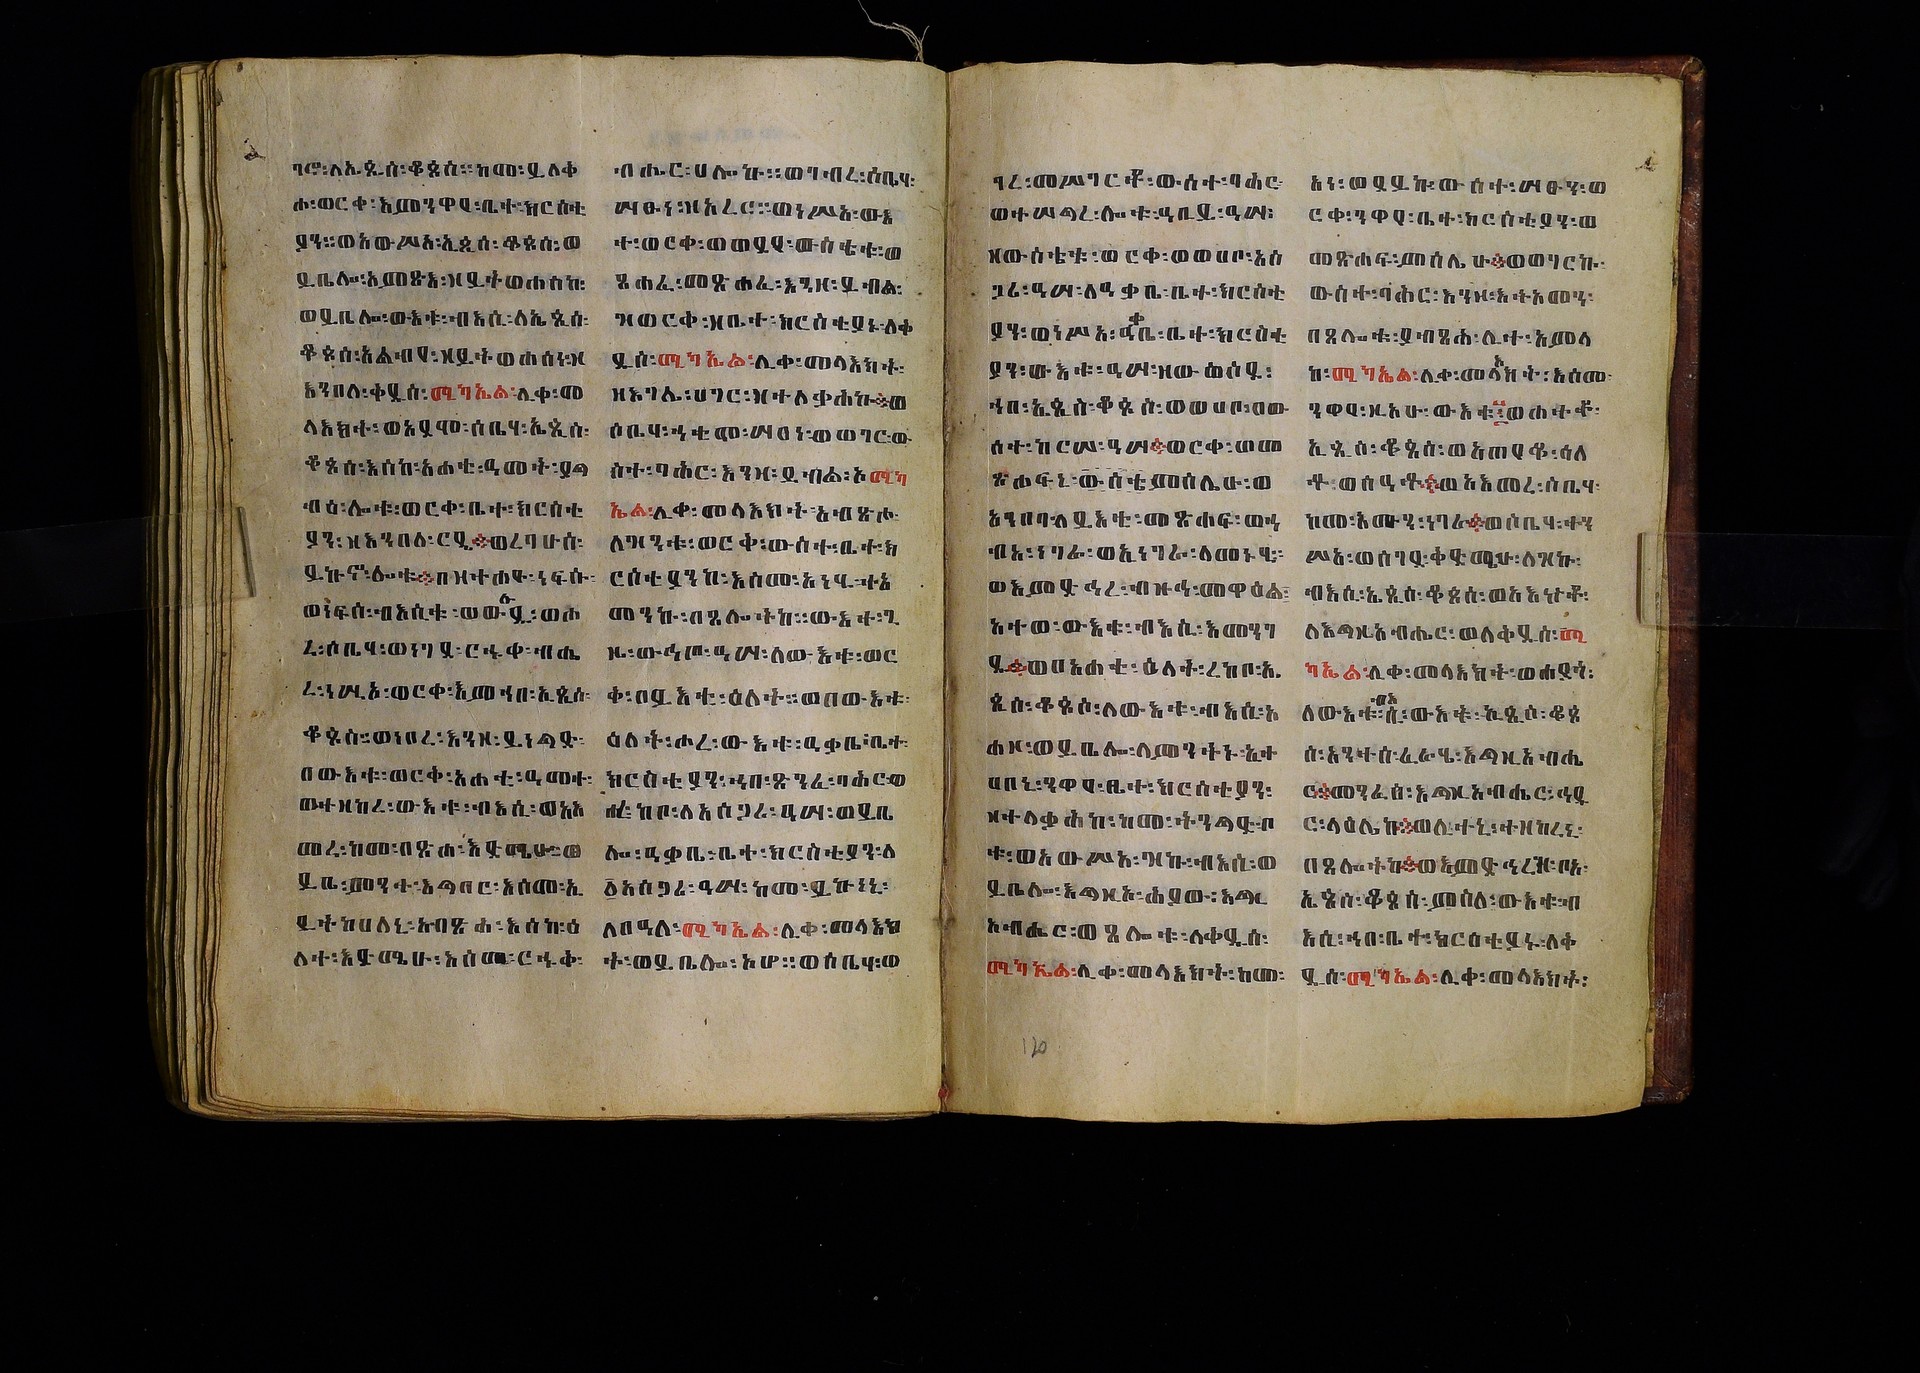 ግሮ፡ለኢጲስ፡ቆጶስ፡፡ከመ፡ይለቀ
ሐ፡ወርቀ፡እምንዋየ፡ቤተ፡ክርስቲ
ያን፡፡ወአውሥአ፡ኢጲስ፡ቆጶስ፡ወ
ይቤሎ፡አመጽእ፡ዘይትወሐስከ፡
ወይቤሎ፡ውእቱ፡ብእሲ፡ለኢጲስ፡
ቆጶስ፡አልብየ፡ዘይትወሐሰኒ፡ዘ
እንበለ፡ቀዲስ፡ሚካኤል፡ሊቀ፡መ
ላእክት፡ወአየሞ፡ሰቤሃ፡ኤጲስ፡
ቆጶስ፡እስከ፡አሐቲ፡ዓመት፡ያጣ
ብዕ፡ሎቱ፡ወርቀ፡ቤተ፡ክርስቲ
ያን፡ዘእንበለ፡ርዴ፡ወረባሁሰ፡
ይኩኖ፡ሎቱ፡በዘተሐዩ፡ነፍሱ፡
ወነፍሰ፡ብእሲቱ፡ወውሉዱ፡ወሐ
ረ፡ሰቤሃ፡ወነግደ፡ርኁቀ፡ብሔ
ረ፡ነሢአ፡ወርቀ፡እምኀበ፡ኢጲስ፡
ቆጶስ፡ወነበረ፡እንዘ፡ይነግድ፡
በውእቱ፡ወርቅ፡አሐተ፡ዓመተ፡
ወተዘከረ፡ውእቱ፡ብእሲ፡ወአእ
መረ፡ከመ፡በጽሐ፡እዴሜሁ፡ወ
ይቤ፡ምንተ፡እገብር፡እስመ፡ኢ
ይትከሀለኒ፡እብጻሕ፡እስከ፡ዕ
ለተ፡እዴሜሁ፡እስመ፡ርኁቅ፡
ብሔር፡ሀሎኩ፡፡ወግብረ፡ሰቤሃ፡
ሣፁነ፡ዘአረር፡፡ወነሥአ፡ውእ
ተ፡ወርቀ፡ወወደየ፡ውስቴቱ፡ወ
ጸሐፈ፡መጽሐፈ፡እንዘ፡ይብል፡
ዝወርቅ፡ዘቤተ፡ክርስቲያኑ፡ለቀ
ዲስ፡ሚካኤል፡ሊቀ፡መላእክት፡
ዘእግሌ፡ሀገር፡ዘተለቃሕኩ፡ወ
ሰቤሃ፡ኀቲሞ፡ሣፀነ፡ወወገር፡ው
ስተ፡ባሕር፡እንዘ፡ይብል፡አሚካ
ኤል፡ሊቀ፡መላእክት፡አብጽሖ፡
ለዝንቱ፡ወርቅ፡ውስተ፡ቤተ፡ክ
ርስቲያንከ፡እስመ፡አነሂ፡ተአ
መንኩ፡በጸሎትከ፡፡ውእተ፡ጊ
ዜ፡ውኅጦ፡ዓሣ፡ለውእቱ፡ወር
ቅ፡በይእቲ፡ዕለት፡፡ወበውእቱ፡
ዕለት፡ሖረ፡ውእቱ፡ዲቃቤ፡ቤተ፡
ክርስቲያን፡ኀበ፡ጽንፈ፡ባሕር፡ወ
ሐ፡ከቦ፡ለአስጋሪ፡ዓሣ፡ወይቤ
ሎ፡ዲቃቤ፡ቤተ፡ክርስቲያን፡ለ
፩አስጋሪ፡ዓሣ፡ከመ፡ይኩነኒ፡
ለበዓለ፡ሚካኤል፡ሊቀ፡መላእክ
ት፡ወይቤሎ፡አሆ፡፡ወሰቤሃ፡ወ
ገረ፡መሥገርቶ፡ውስተ፡ባሕር፡
ወተሣጋረ፡ሎቱ፡ዓቢይ፡ዓሣ፡
ዘውስቴቱ፡ወርቅ፡ወወሀቦ፡አስ
ጋሪ፡ዓሣ፡ለዓቃቤ፡ቤተ፡ክርስቲ
ያን፡ወነሥአ፡ዓቃቤ፡ቤተ፡ክርስቲ
ያን፡ውእቱ፡ዓሣ፡ዘውሐሰዩ፡
ኀበ፡ኢጲስ፡ቆጶስ፡ወወሀቦ፡በው
ስተ፡ከርሠ፡ዓሣ፡ወርቀ፡ወመ
ጽሐፍኒ፡ውስቴ፡ምስሌሁ፡ወ
አንበባ፡ለይእቲ፡መጽሐፍ፡ወኀ
ብአ፡ነገራ፡ወአነገራ፡ለመኑሂ፡
ወእምድኅረ፡ብዙኅ፡መዋዕል፡
አተወ፡ውእቱ፡ብእሲ፡እመንግ
ዱ፡ወበአሐቲ፡ዕለት፡ረከቦ፡ኢ
ጲስ፡ቆጶስ፡ለውእቱ፡ብእሲ፡አ
ሐዘ፡ወይቤሎ፡ለምንትኑ፡ኢተ
ሀበኒ፡ንዋየ፡ቤተ፡ክርስቲያን፡
ዘተላቃሕከ፡ከመ፡ትንግድ፡ቦ
ቱ፡ወአውሥአ፡ዝኩ፡ብእሲ፡ወ
ይቤሎ፡እግዚአ፡ሕያው፡እግዚ
አብሔር፡ወጸሎቱ፡ለቀዲስ፡
ሚካኤል፡ሊቀ፡መላእክት፡ከመ፡
አነ፡ወደይኩ፡ውስተ፡ሣፁን፡ወ
ርቀ፡ንዋየ፡ቤተ፡ክርስቲያን፡ወ
መጽሐፍ፡ምስሌሁ፡ወወገርኩ፡
ውስተ፡ባሕር፡እንዘ፡እትአመን፡
በጸሎቱ፡ያብጽሐ፡ሊተ፡አምላ
ከ፡ሚካኤል፡ሊቀ፡መላእክት፡እስመ፡
ንዋየ፡ዚአሁ፡ውእቱ፡ወሐተቶ፡
ኢጲስ፡ቆጶስ፡ወአጠየቆ፡ሰለ
ቶ፡ወሰዓቶ፡ወአእመረ፡ሰቤሃ፡
ከመ፡እሙን፡ነገራ፡ወሰቤሃ፡ተን
ሥአ፡ወሰገደ፡ቀድሜሁ፡ለዝኩ፡
ብእሲ፡ኢጲስ፡ቆጶስ፡ወአእኰቶ፡
ለእግዚአብሔር፡ወለቀዲስ፡ሚ
ካኤል፡ሊቀ፡መላእክት፡ወሐደገ፡
ለውእቱ፡ብእሲ፡ውእቱ፡ኢጲስ፡ቆጶ
ስ፡እንተ፡ሰፈራሄ፡እግዚአብሔ
ር፡መንፈሰ፡እግዚአብሔር፡ኀይ
ር፡ላዕሌከ፡ወሊተኒ፡ተዘከረኒ፡
በጸሎትከ፡ወእምድኅረዝ፡ቦአ፡
ኢጲስ፡ቆጶስ፡ምስለ፡ውእቱ፡ብ
እሲ፡ኀበ፡ቤተ፡ክርስቲያኑ፡ለቅ
ዱስ፡ሚካኤል፡ሊቀ፡መላእክት፡
120